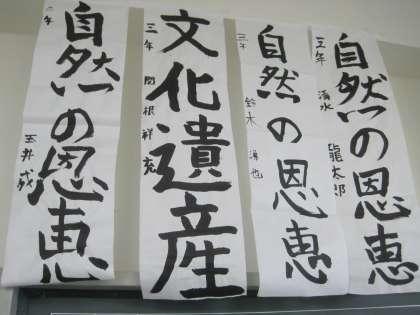 自然の恩恵
三年 清水 龍太郎
自然の恩恵
三年 鈴木
文化遺産
三年 関根 祥充
自然の恩恵
年 玉井 成